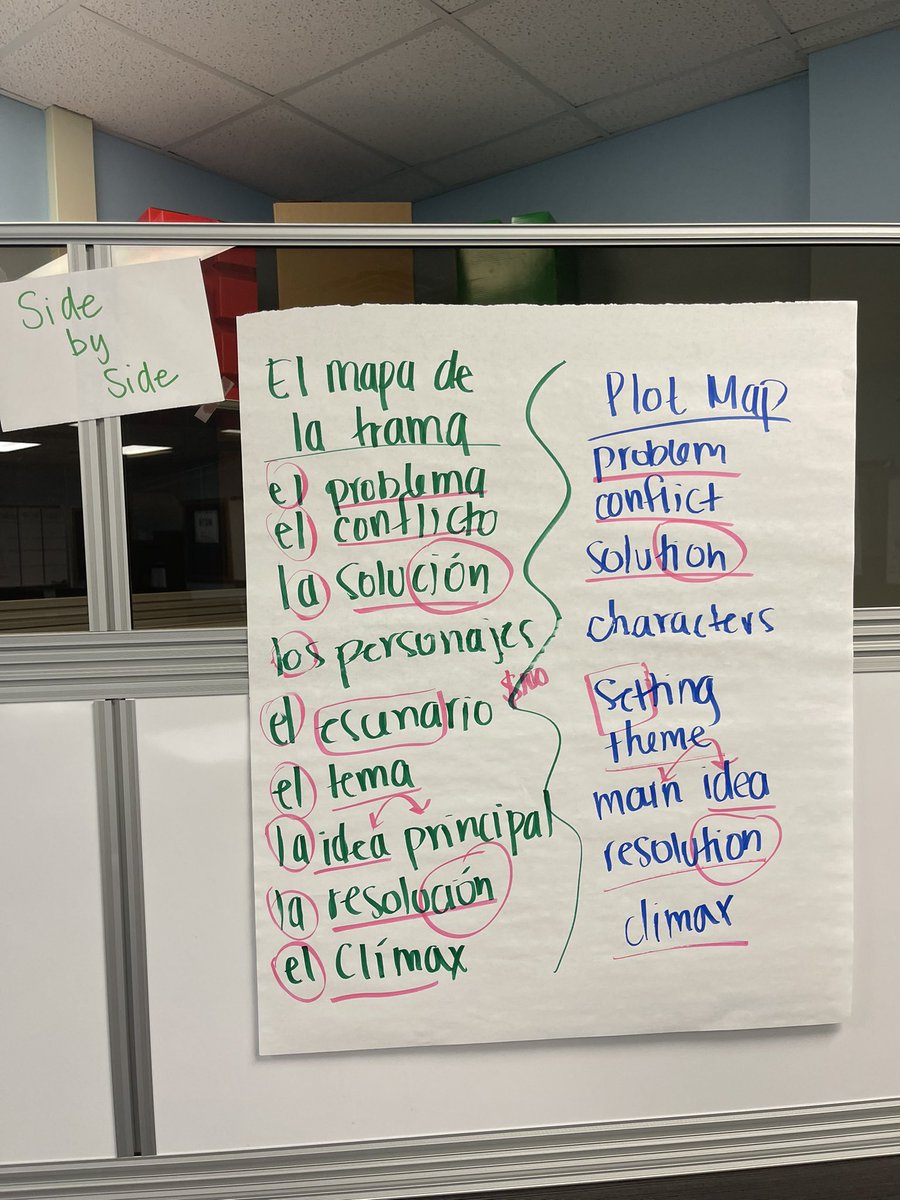 Side
by
Side
El mapa de
la trama
el problema
el conflicto
la solución
los personajes
el escenario
el tema
la idea principal
la resolución
el Clímax
Plot Map
problem
conflict
solution
characters
Setting
theme
main idea
resolution
climax